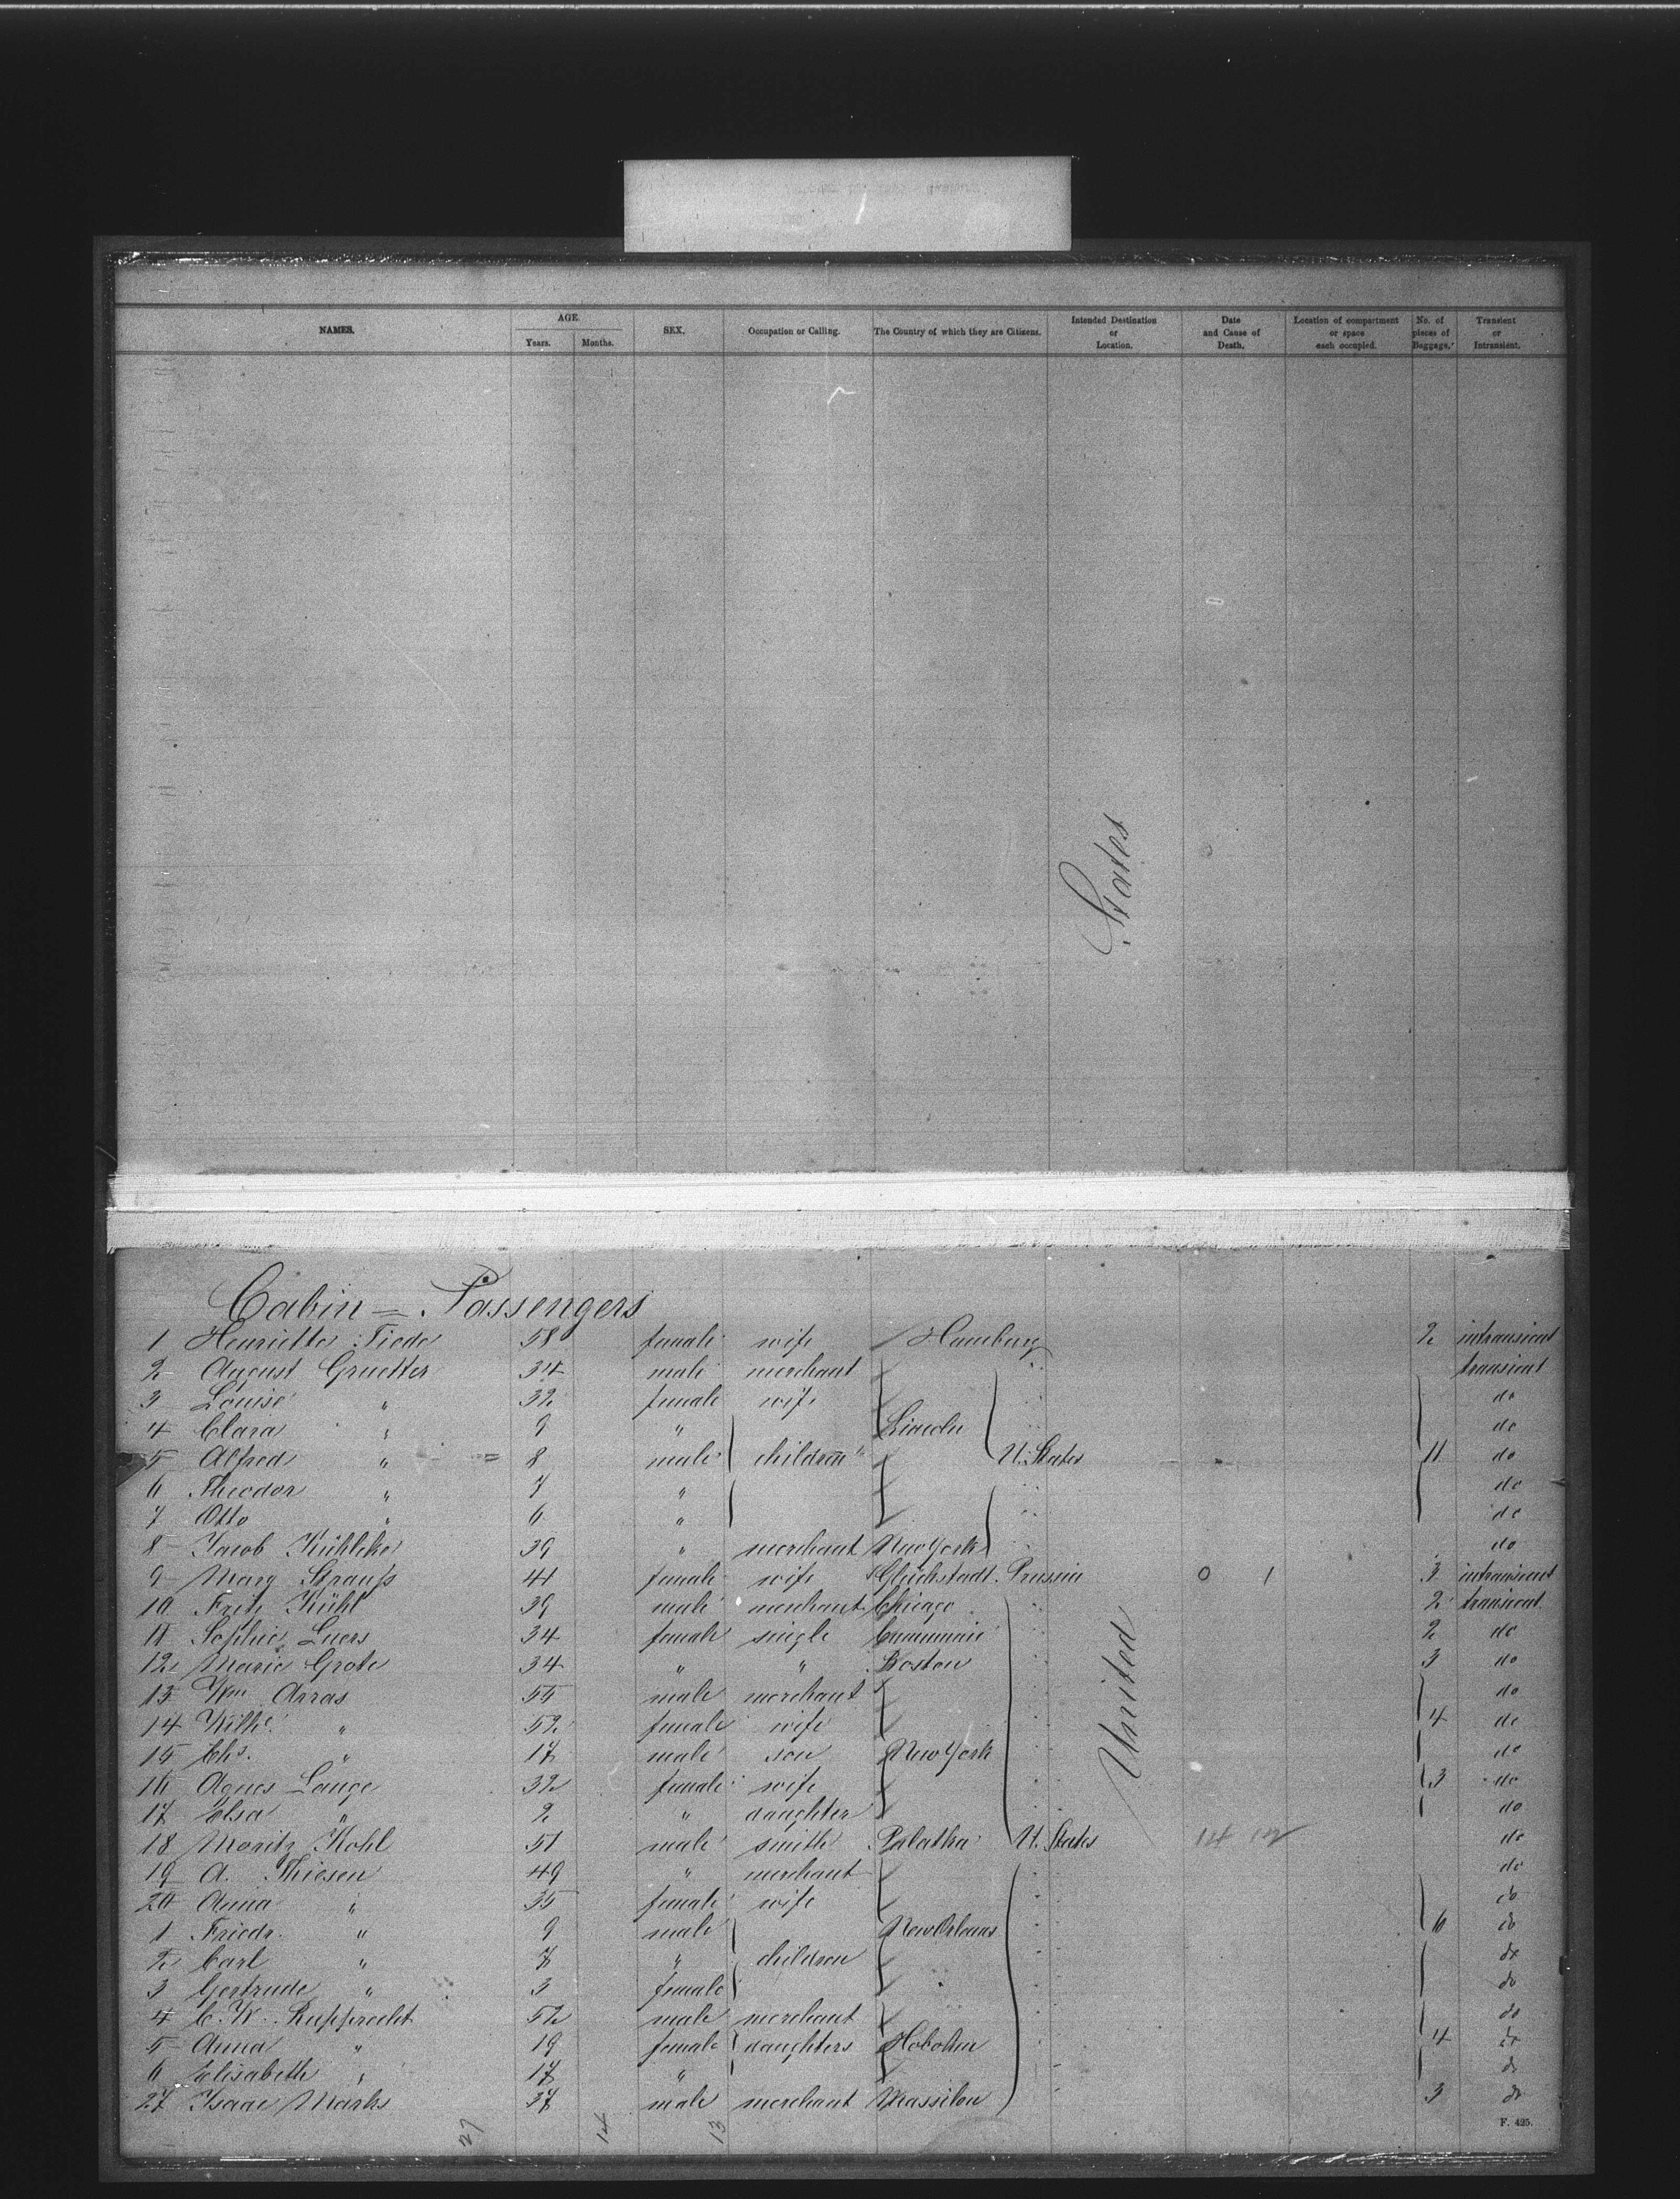 NAMES. AGE. Years. Months. SEX. Occupation or Calling. The Country of which they are Citizens. Intended Destination or Location. Date and Cause of Death. Location of compartment or space each occupied. No. of pieces of Baggage. Transient or Intransient.
States
Cabin = Passengers
1 Henriette Tiede 58 female wife Hamburg 2 intransient
2 August Gruetter 34 male merchant transient
3 Louise " 32 female wife do
4 Clara " 9 " Lincoln do
5 Alfred " = 8 male children U. States 11 do
6 Theodor " 7 " do
7 Otto " 6 " do
8 Jacob 39 " merchant New York do
9 Mary Strauß 41 female wife Glückstadt Prussia 0 1 3 intransient
10 Fritz Kühl 39 male merchant Chicago 2 transient
11 Sophie Luers 34 female single 2 do
12 Marie Grote 34 " " Boston 3 do
13 Wm Arras 55 male merchant do
14 Wilhe. " 52 female wife 4 do
15 Chs. " 17 male son New York do
16 Agnes Lange 32 female wife 3 do
17 Elsa " 2 " daughter do
United
18 Moritz Kohl 51 male smith Palatka U. States do
19 A. Thiesen 49 " merchant do
20 Anna " 35 female wife do
1 Friedr. " 9 male New Orleans 6 do
2 Carl " 7 " children do
3 Gertrude " 3 female do
4 C. W. Rupprecht 52 male merchant do
5 Anna " 19 female daughters Hoboken 4 do
6 Elisabeth " 17 " do
27 Isaac Marks 37 male merchant Massilon 3 do
27 14 13
F. 425.